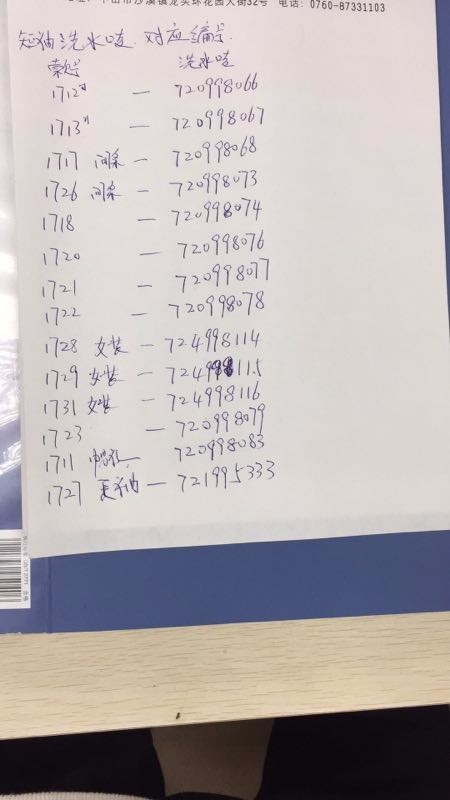 中山市沙溪镇龙头环花园大街32号 电话：0760-87331103
短袖洗水唛 对应编号
款号 洗水唛
1712" — 720998066
1713" — 720998067
1717 间条 — 720998068
1726 间条 — 720998073
1718 — 720998074
1720 — 720998076
1721 — 720998077
1722 — 720998078
1728 女装 — 724998114
1729 女装 — 724998115
1731 女装 — 724998116
1723 — 720998079
1711 720998083
1727 — 721995333